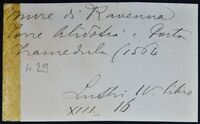 mure di Ravenna
Torre Alidosia e Porta
Gramedula (1506
429
Lustri IV libro
XIII 16